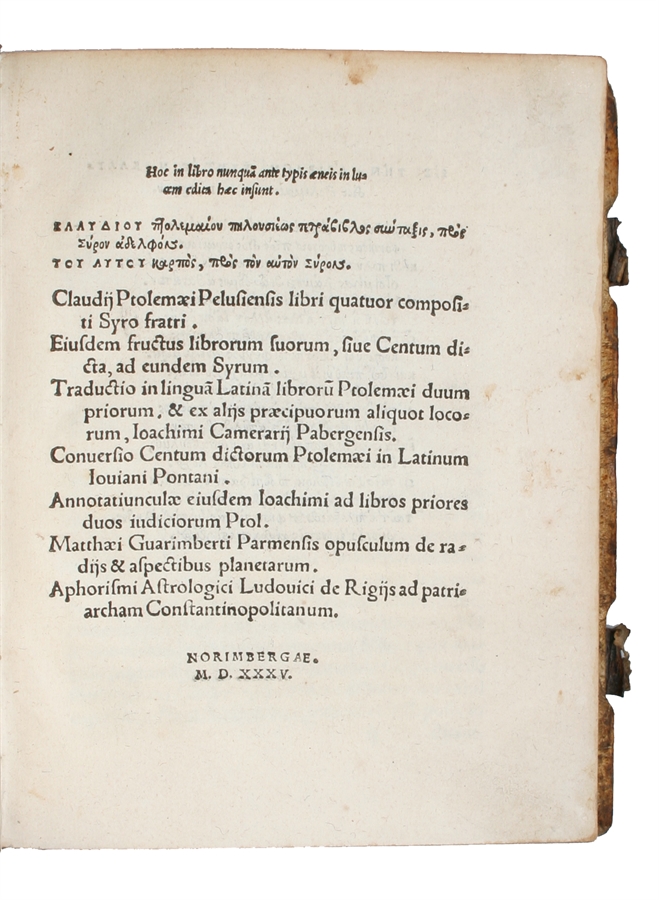 Hoc in libro nunquã ante typis æneis in lu=
cem edita hæc insunt.
ΚΛΑΥΔΙΟΥ Πτολεμαίου πηλουσιέως τετράβιβλος σύνταξις, πρὸς
Σύρον ἀδελφόν.
ΤΟΥ ΑΥΤΟΥ καρπὸς, πρὸς τὸν αὐτὸν Σύρον.
Claudij Ptolemæi Pelusiensis libri quatuor composi=
ti Syro fratri .
Eiusdem fructus librorum suorum, siue Centum di=
cta, ad eundem Syrum .
Traductio in linguã Latinã librorũ Ptolemæi duum
priorum, & ex alijs præcipuorum aliquot loco=
rum, Ioachimi Camerarij Pabergensis.
Conuersio Centum dictorum Ptolemæi in Latinum
Iouiani Pontani .
Annotatiunculæ eiusdem Ioachimi ad libros priores
duos iudiciorum Ptol.
Matthæi Guarimberti Parmensis opusculum de ra=
dijs & aspectibus planetarum .
Aphorismi Astrologici Ludouici de Rigijs ad patri=
archam Constantinopolitanum.
NORIMBERGAE.
M. D. XXXV.